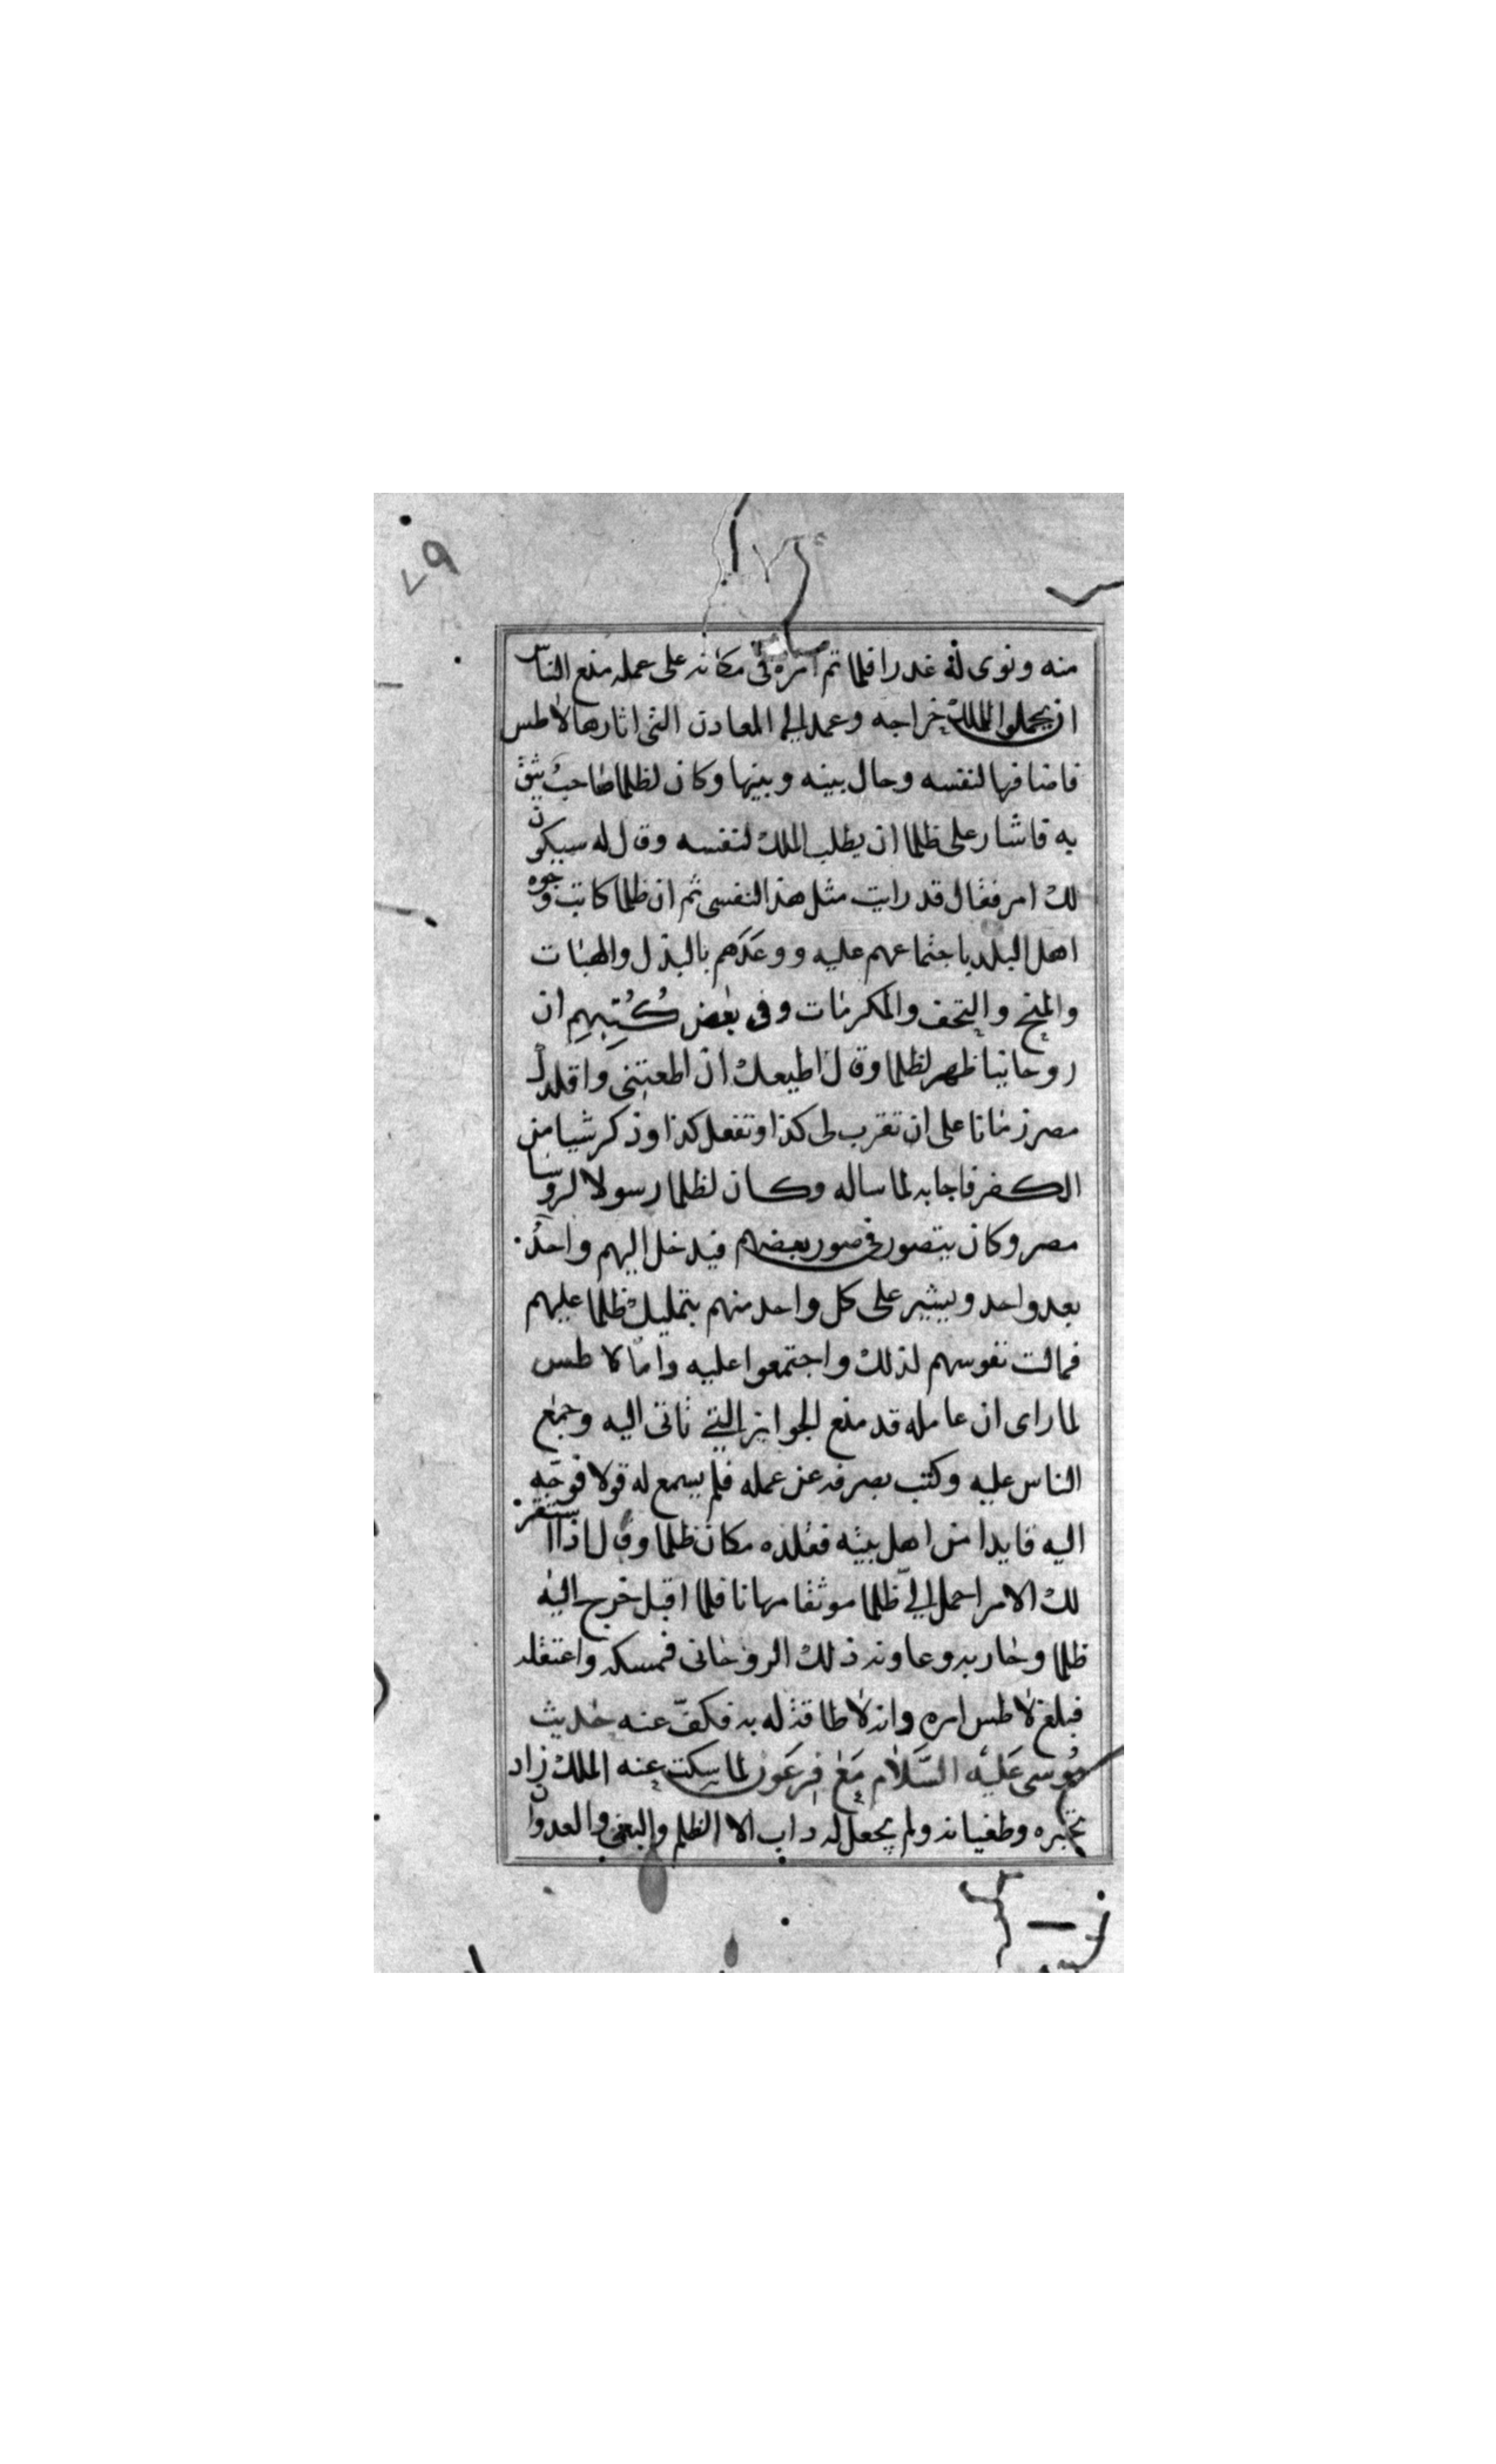 ٧٩
منه ونوى له غدرا فلما تم امره فى مكانه على عمله منع الناس
ان يحملوا للملك خراجه وعمد الى المعادن التى اثارها لاطس
فاضافها لنفسه وحال بينه وبينها وكان لظلما صاحب يثق
به فاشار على ظلما ان يطلب الملك لنفسه وقال له سيكون
لك امر فقال قد رايت مثل هذا لنفسى ثم ان ظلما كاتب وجوه
اهل البلد باجتماعهم عليه ووعدهم بالبذل والهبات
والمنح والتحف والمكرمات وفى بعض كُتبهِم ان
روحانيا ظهر لظلما وقال اطيعك ان اطعتنى واقلدك
مصر زمانا على ان تقرب لى كذا وتفعل كذا وذكر شيا من
الكفر فاجابه لما ساله وكان لظلما رسولا لروسا
مصر وكان يتصور فى صور بعضهم فيدخل اليهم واحدُ
بعد واحد ويشير على كل واحد منهم بتمليك ظلما عليهم
فمالت نفوسهم لذلك واجتمعوا عليه وامّا لاطس
لما راى ان عامله قد منع الجوايز التى تاتى اليه وجمع
الناس عليه وكتب بصرفه عن عمله فلم يسمع له قولا فوجّه
اليه قايدا من اهل بيته فقلده مكان ظلما وقال اذا استقر
لك الامر احمل اليّ ظلما موثقا مهانا فلما اقبل خرج اليه
ظلما وحاربه وعاونه ذلك الروحانى فمسكه واعتقله
فبلغ لاطس امره وانه لا طاقة له به فكفّ عنه حديث
مُوسى عَليه السَّلام مَعَ فِرعَون لما سكت عنه الملك زاد
تجبره وطغيانه ولم يجعل له داب الا الظلم والبغى والعدوان